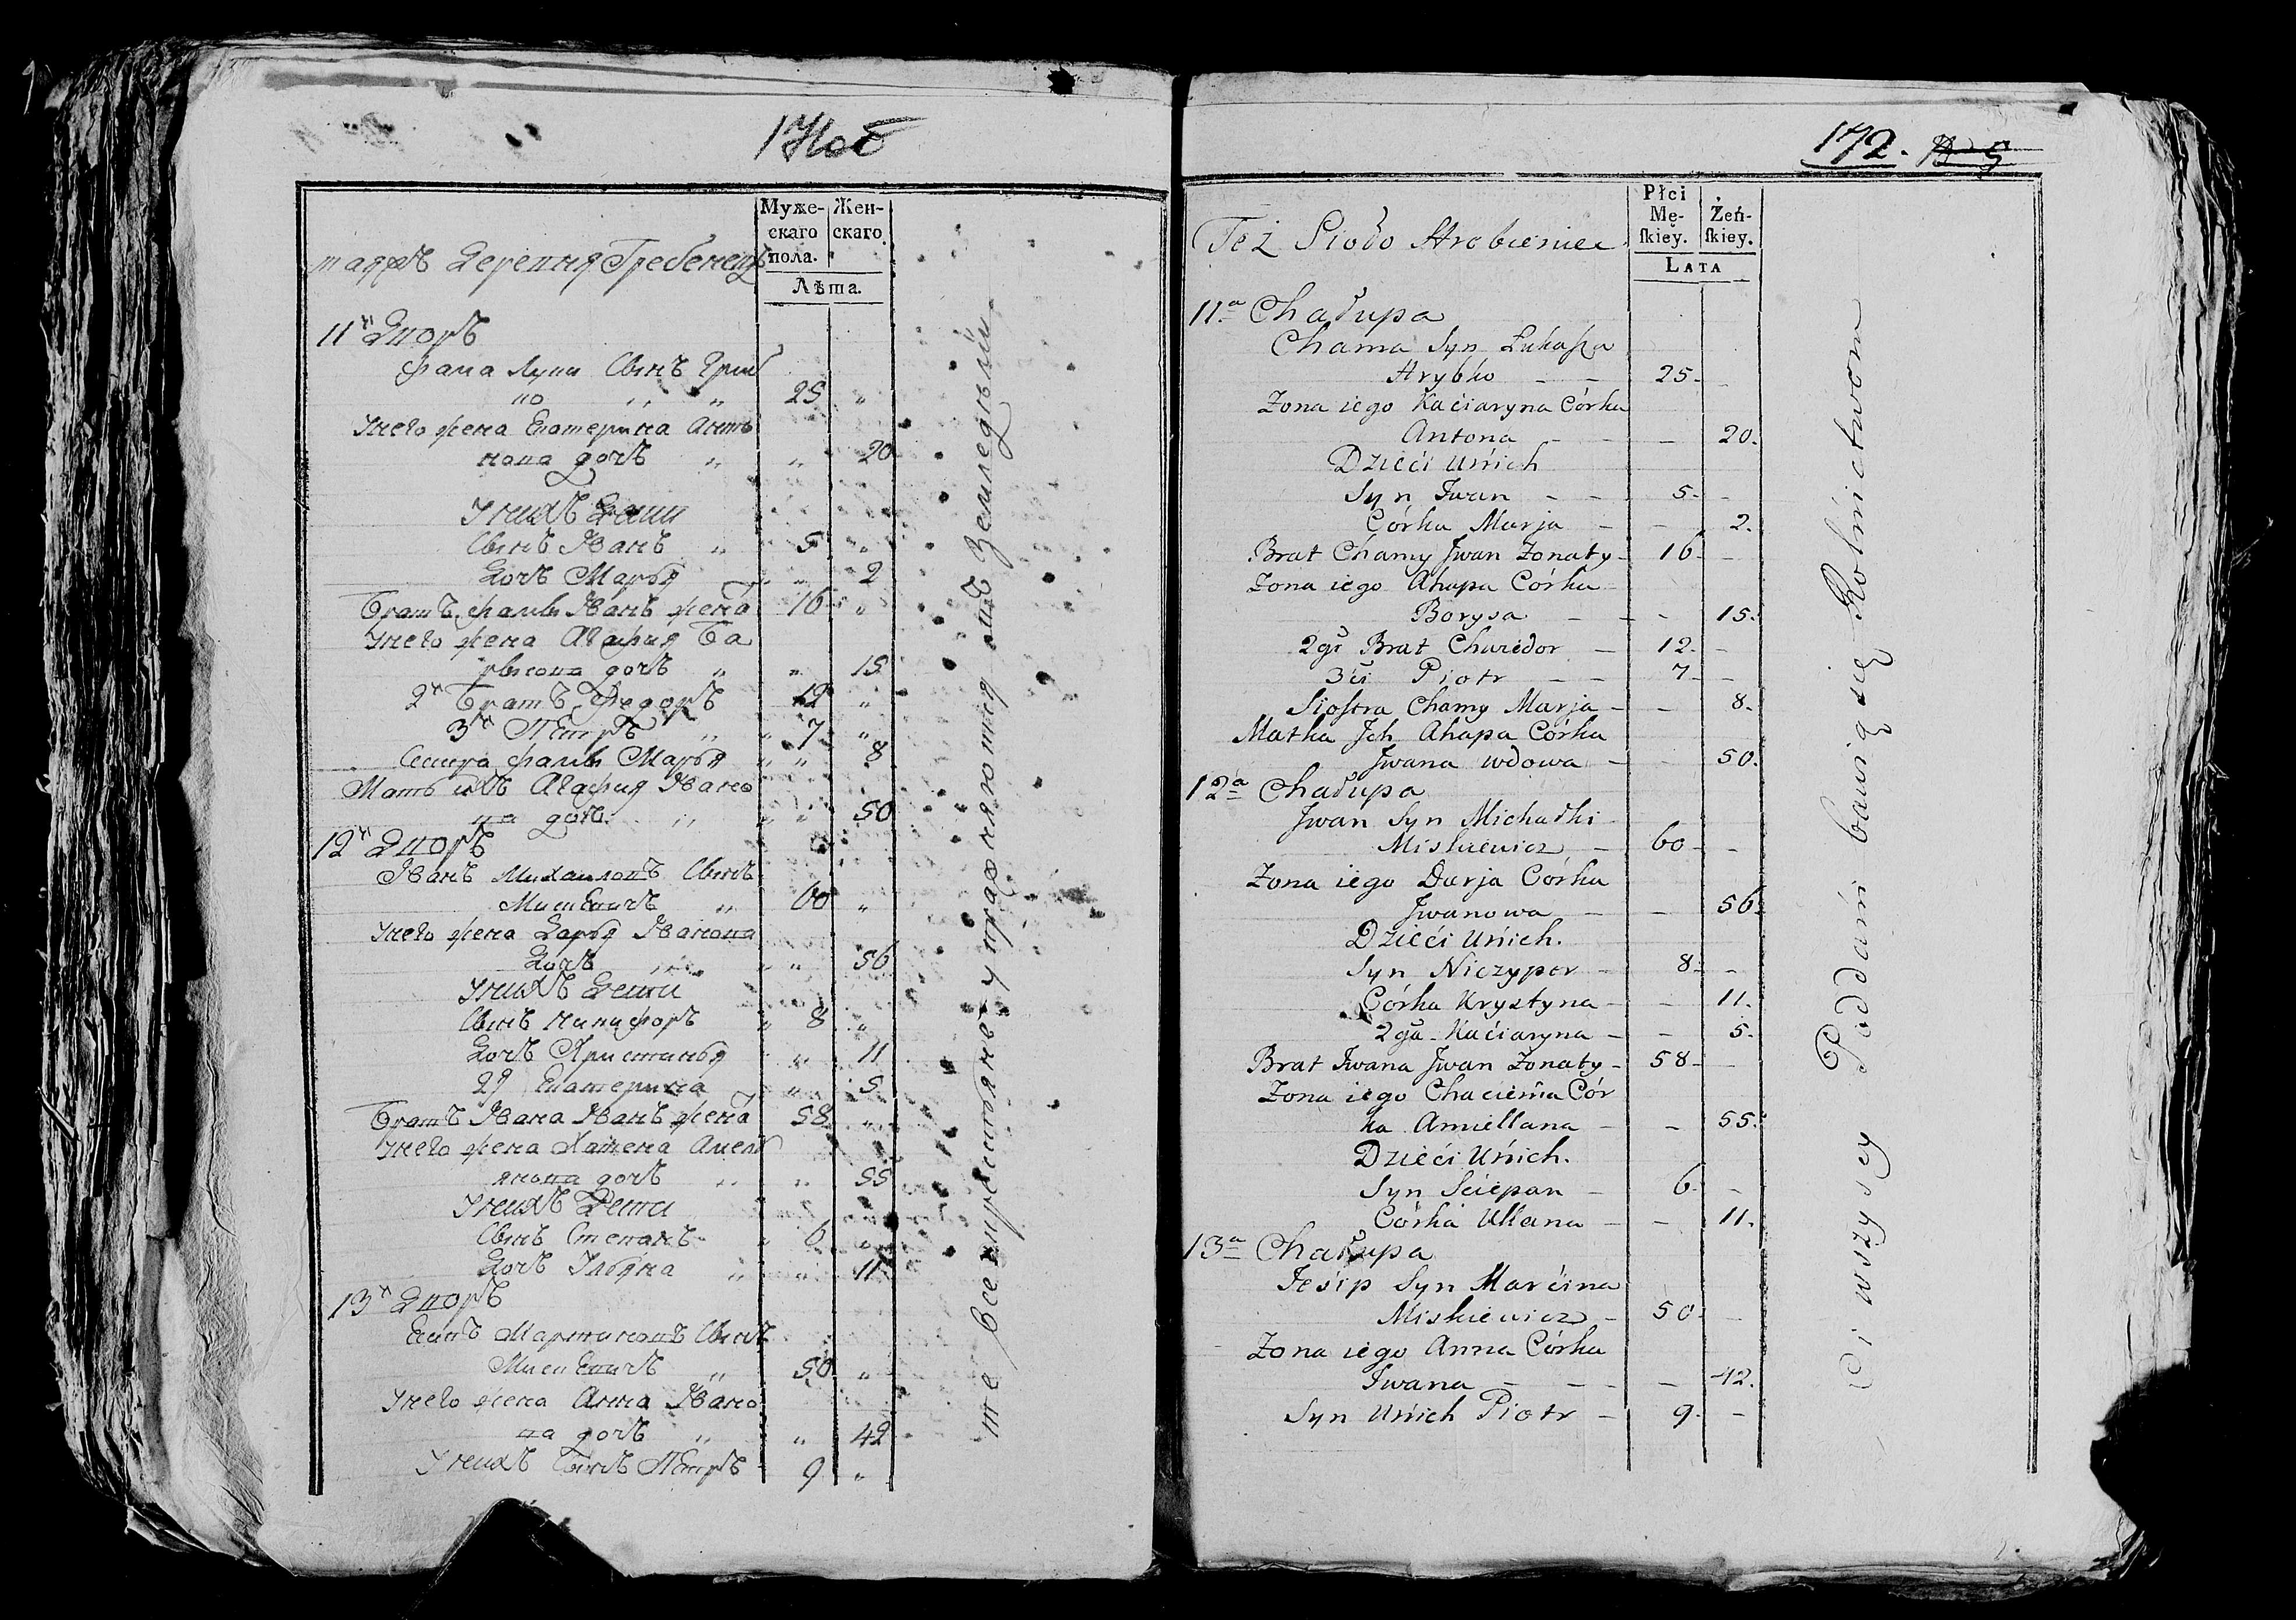 Муже-
скаго
пола.
Жен-
скаго
Лѣта.
таяжъ Деревня Гребенецъ
11й Дворъ
Фама Луки Сынъ Гриб
ко „ „ 25 „
Унего жена Екатерина Анто
нова дочъ „ „ 20
Унихъ Дети
Сынъ Иванъ „ 5 „
Дочъ Марья „ „ 2
Братъ Фамы Иванъ жена 16 „
Унего жена Агафия Ба
рысова дочъ „ „ 15
2й Братъ Федоръ 12 „
3й Петръ „ 7 „
Сестра Фамы Марья „ „ 8
Мать ихъ Агафия Ивано
ва дочъ „ „ 50
12й Дворъ
Иванъ Михаиловъ Сынъ
Мискевичъ „ 60 „
Унего жена Дарья Иванова
Дочъ „ „ 56
Унихъ Дети
Сынъ Ничифоръ „ 8 „
Дочъ Християнья „ 11
2я Екатерина „ 5
Братъ Ивана Иванъ жена 58 „
Унего жена Хатена Амель
янова дочъ „ „ 55
Унихъ Дети
Сынъ Степанъ „ 6 „
Дочъ Ульяна „ „ 11
13й Дворъ
Есипъ Мартиновъ Сынъ
Мискевичъ „ 50 „
Унего жена Анна Ивано
ва дочъ „ „ 42
Унихъ Сынъ Петръ 9 „
те все крестьянъ упражняются въ Земледелыи
172.
Płci
Mę-
ſkiey.
Żeń-
ſkiey.
LATA
Też Sioło Hrobieniec
11a Chałupa
Chama Syn Łukaſza
Hrybko – – 25 –
Zona iego Kaciaryna Córka
Antona – – – 20.
Dzieći Unich
Syn Jwan – – 5 –
Córka Marja – – 2.
Brat Chamy Jwan Zonaty – 16 –
Zona iego Ahapa Córka
Borysa – – – 15.
2gi Brat Chwiedor – 12 –
3ci Piotr – – 7 –
Sioſtra Chamy Marja – – 8.
Matka Jch Ahapa Córka
Jwana wdowa – – 50.
12a Chałupa
Jwan Syn Michałki
Miskiewicz – 60 –
Zona iego Darja Córka
Jwanowa – – 56.
Dzieći Unich.
Syn Niczyper – 8 –
Córka Krystyna – – 11.
2ga Kaciaryna – – 5.
Brat Jwana Jwan Zonaty – 58 –
Zona iego Chaciema Cór
ka Amiellana – – 55.
Dzieći Unich.
Syn Sciepan – 6 –
Córka Ullana – – 11.
13a Chałupa
Jesip Syn Marcina
Miskiewicz – 50 –
Zona iego Anna Córka
Jwana – – – 42.
Syn Unich Piotr – 9 –
Ci wszyscy Poddani bawią się Rolnictwom